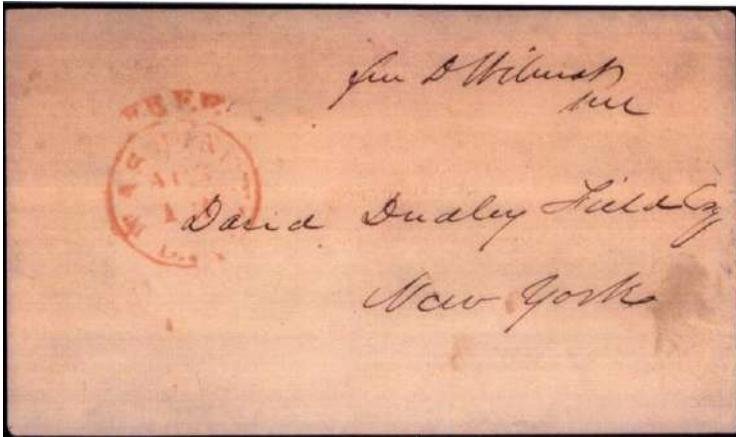 free D Wilmot
MC
FREE
WASHINGTON
AUG
D.C.
David Dudley Field Esq
New York